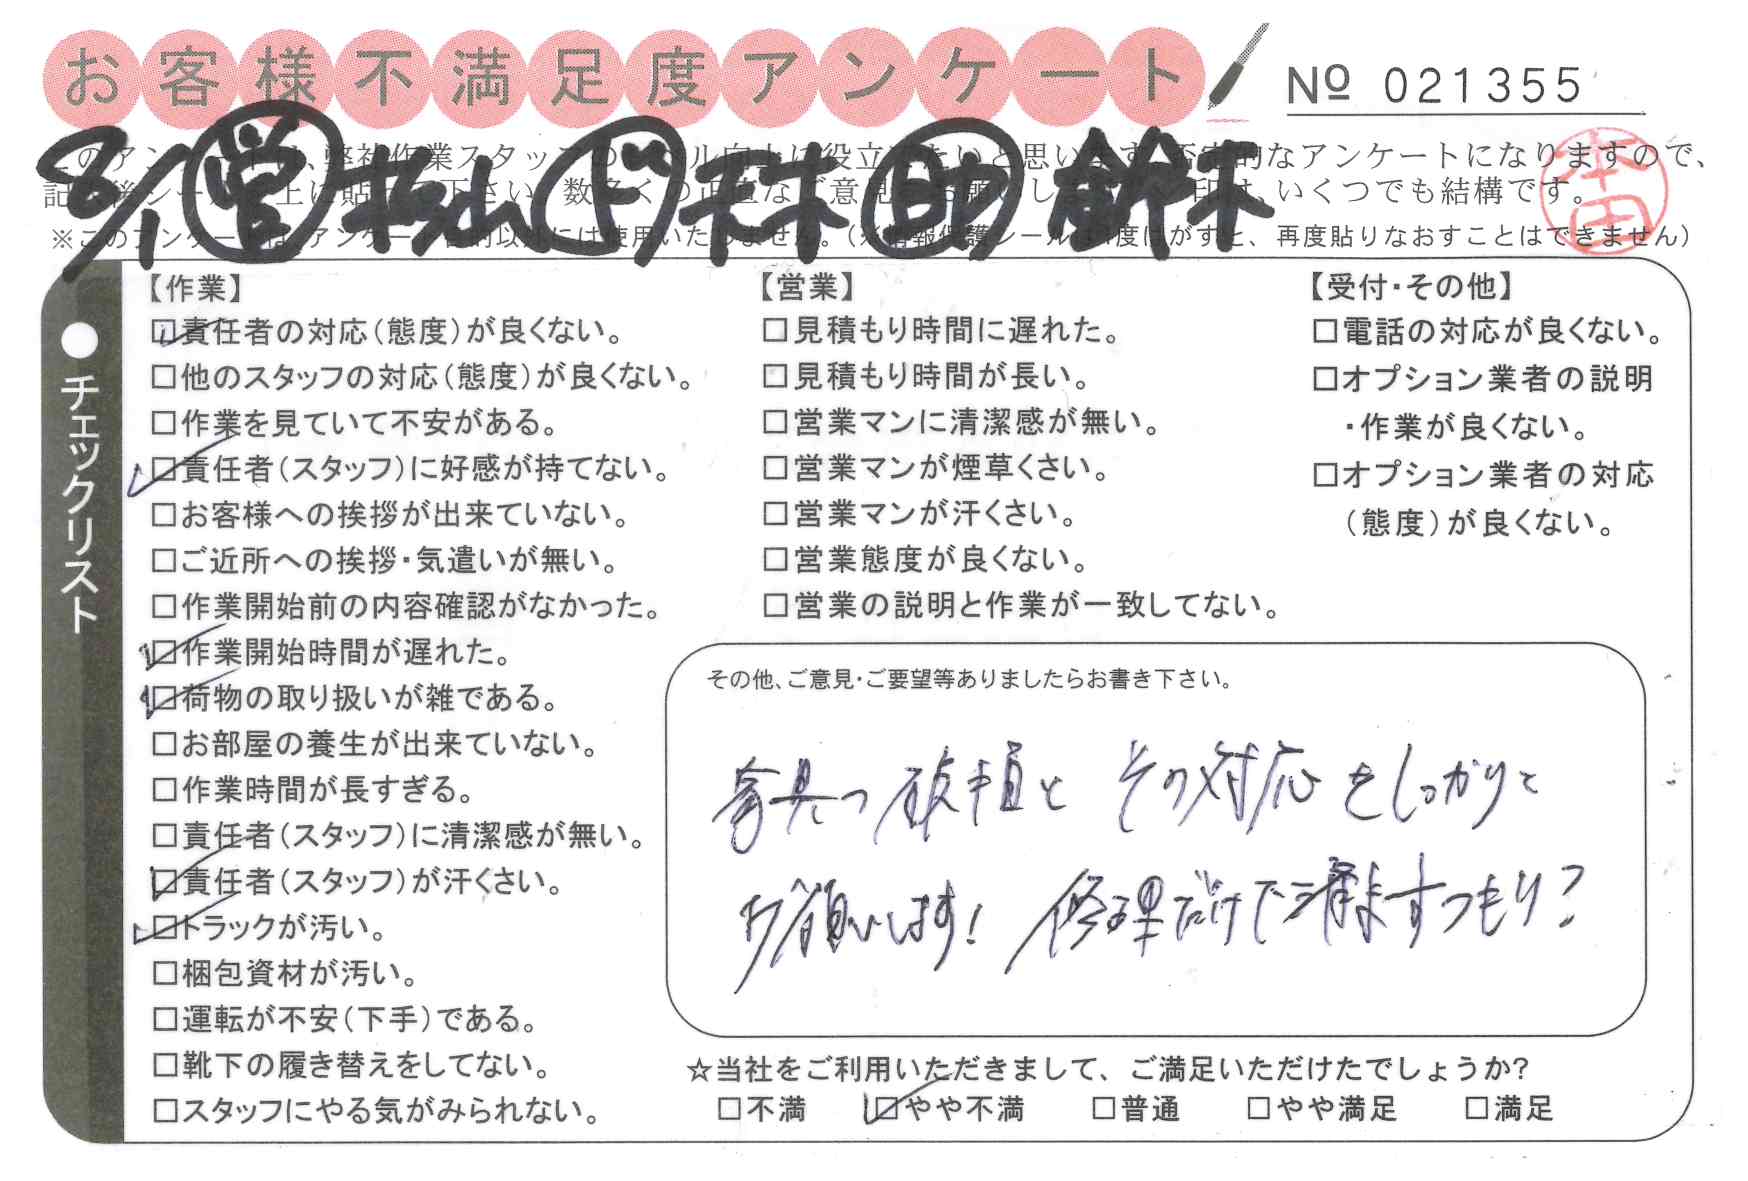 お客様不満足度アンケート
№ 021355
8/1 営 杉山 ド 天木 助 鈴木
このアン は、弊社作業スタッフの ル向上に役立 たいと思い ます。否定的なアンケートになりますので、
記 後シー 上に貼 下さい。数多くの正直なご意見 お願いし 印は、いくつでも結構です。
※このアンケートは、アンケート目的以外には使用いたしません。（※情報保護シールは1度はがすと、再度貼りなおすことはできません）
本田
●チェックリスト
【作業】
□責任者の対応（態度）が良くない。
□他のスタッフの対応（態度）が良くない。
□作業を見ていて不安がある。
□責任者（スタッフ）に好感が持てない。
□お客様への挨拶が出来ていない。
□ご近所への挨拶・気遣いが無い。
□作業開始前の内容確認がなかった。
□作業開始時間が遅れた。
□荷物の取り扱いが雑である。
□お部屋の養生が出来ていない。
□作業時間が長すぎる。
□責任者（スタッフ）に清潔感が無い。
□責任者（スタッフ）が汗くさい。
□トラックが汚い。
□梱包資材が汚い。
□運転が不安（下手）である。
□靴下の履き替えをしてない。
□スタッフにやる気がみられない。
【営業】
□見積もり時間に遅れた。
□見積もり時間が長い。
□営業マンに清潔感が無い。
□営業マンが煙草くさい。
□営業マンが汗くさい。
□営業態度が良くない。
□営業の説明と作業が一致してない。
【受付・その他】
□電話の対応が良くない。
□オプション業者の説明
・作業が良くない。
□オプション業者の対応
（態度）が良くない。
その他、ご意見・ご要望等ありましたらお書き下さい。
家具の破損と その対応をしっかりと
お願いします！ 修理だけで済ますつもり？
☆当社をご利用いただきまして、ご満足いただけたでしょうか？
□不満 □やや不満 □普通 □やや満足 □満足